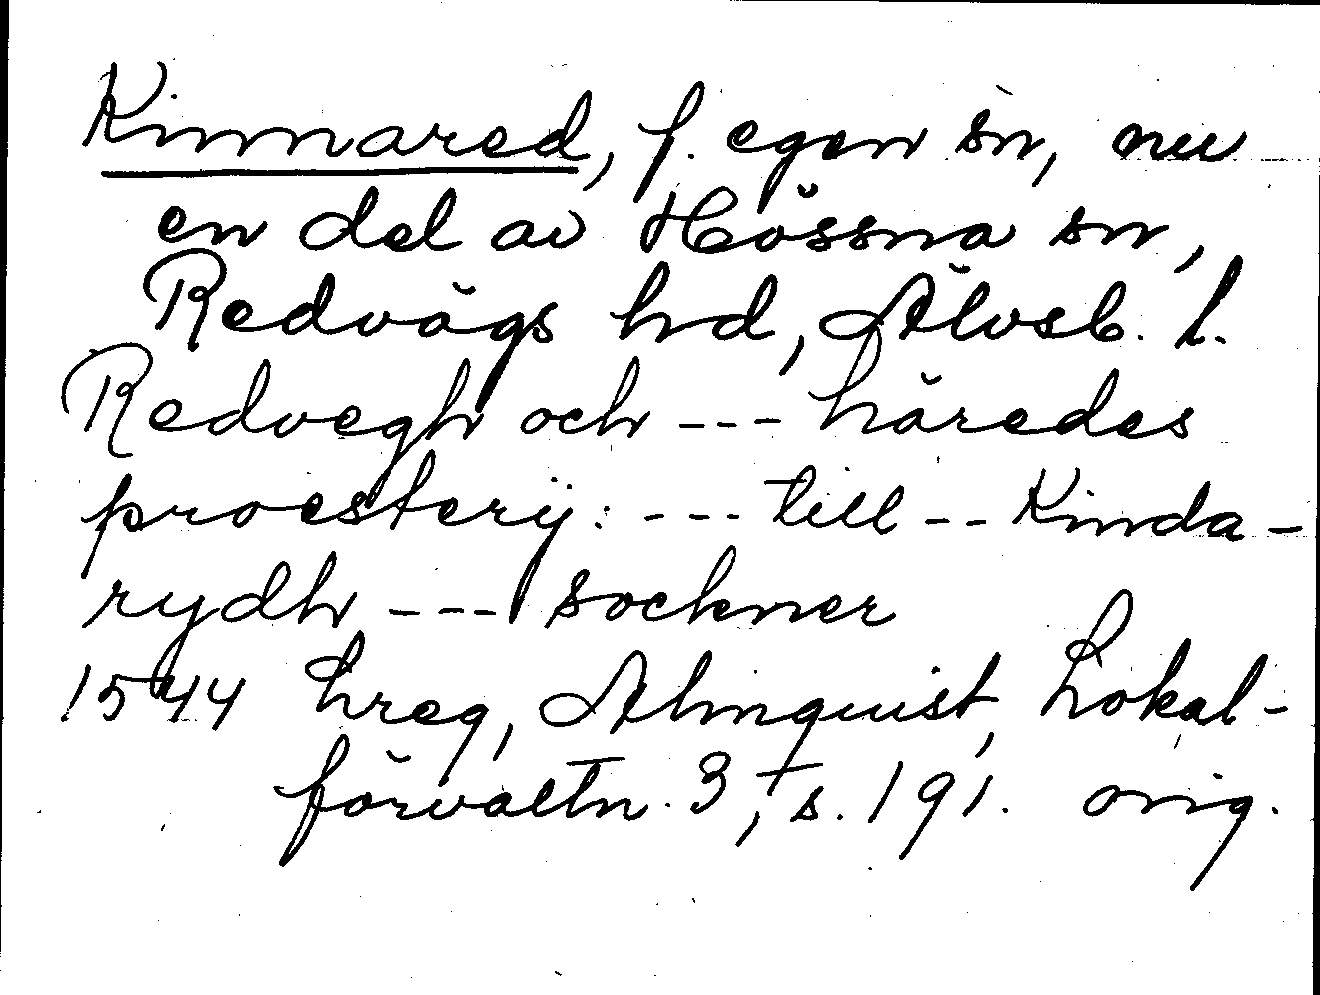 Kinnared, f. egen sn, nu
en del av Hössna sn,
Redvägs hd, Älvsb. l.
Redvegh och --- häredes
proesterij: --- till -- Kinda-
rydh --- sockner
1544 hreg, Almquist, Lokal-
förvaltn. 3, s. 191. orig.